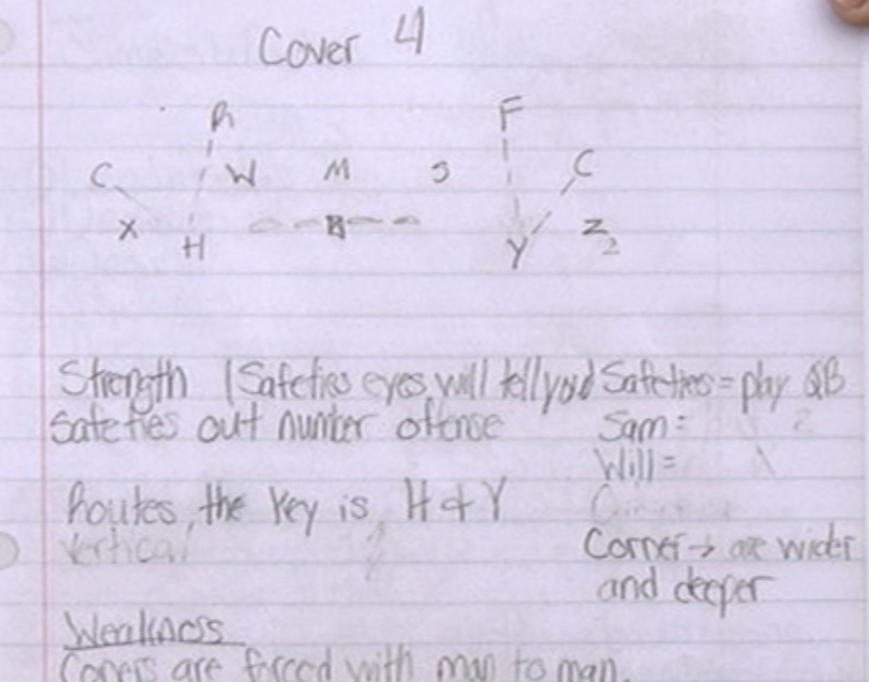 Cover 4
R F
C W M S C
X H Y Z
Strength (Safeties eyes will tell you)
Safeties out number offense
Routes, the key is H & Y
Vertical
Safeties = play QB
Sam =
Will =
Corner → are wider
and deeper
Weakness
Coners are forced with man to man.